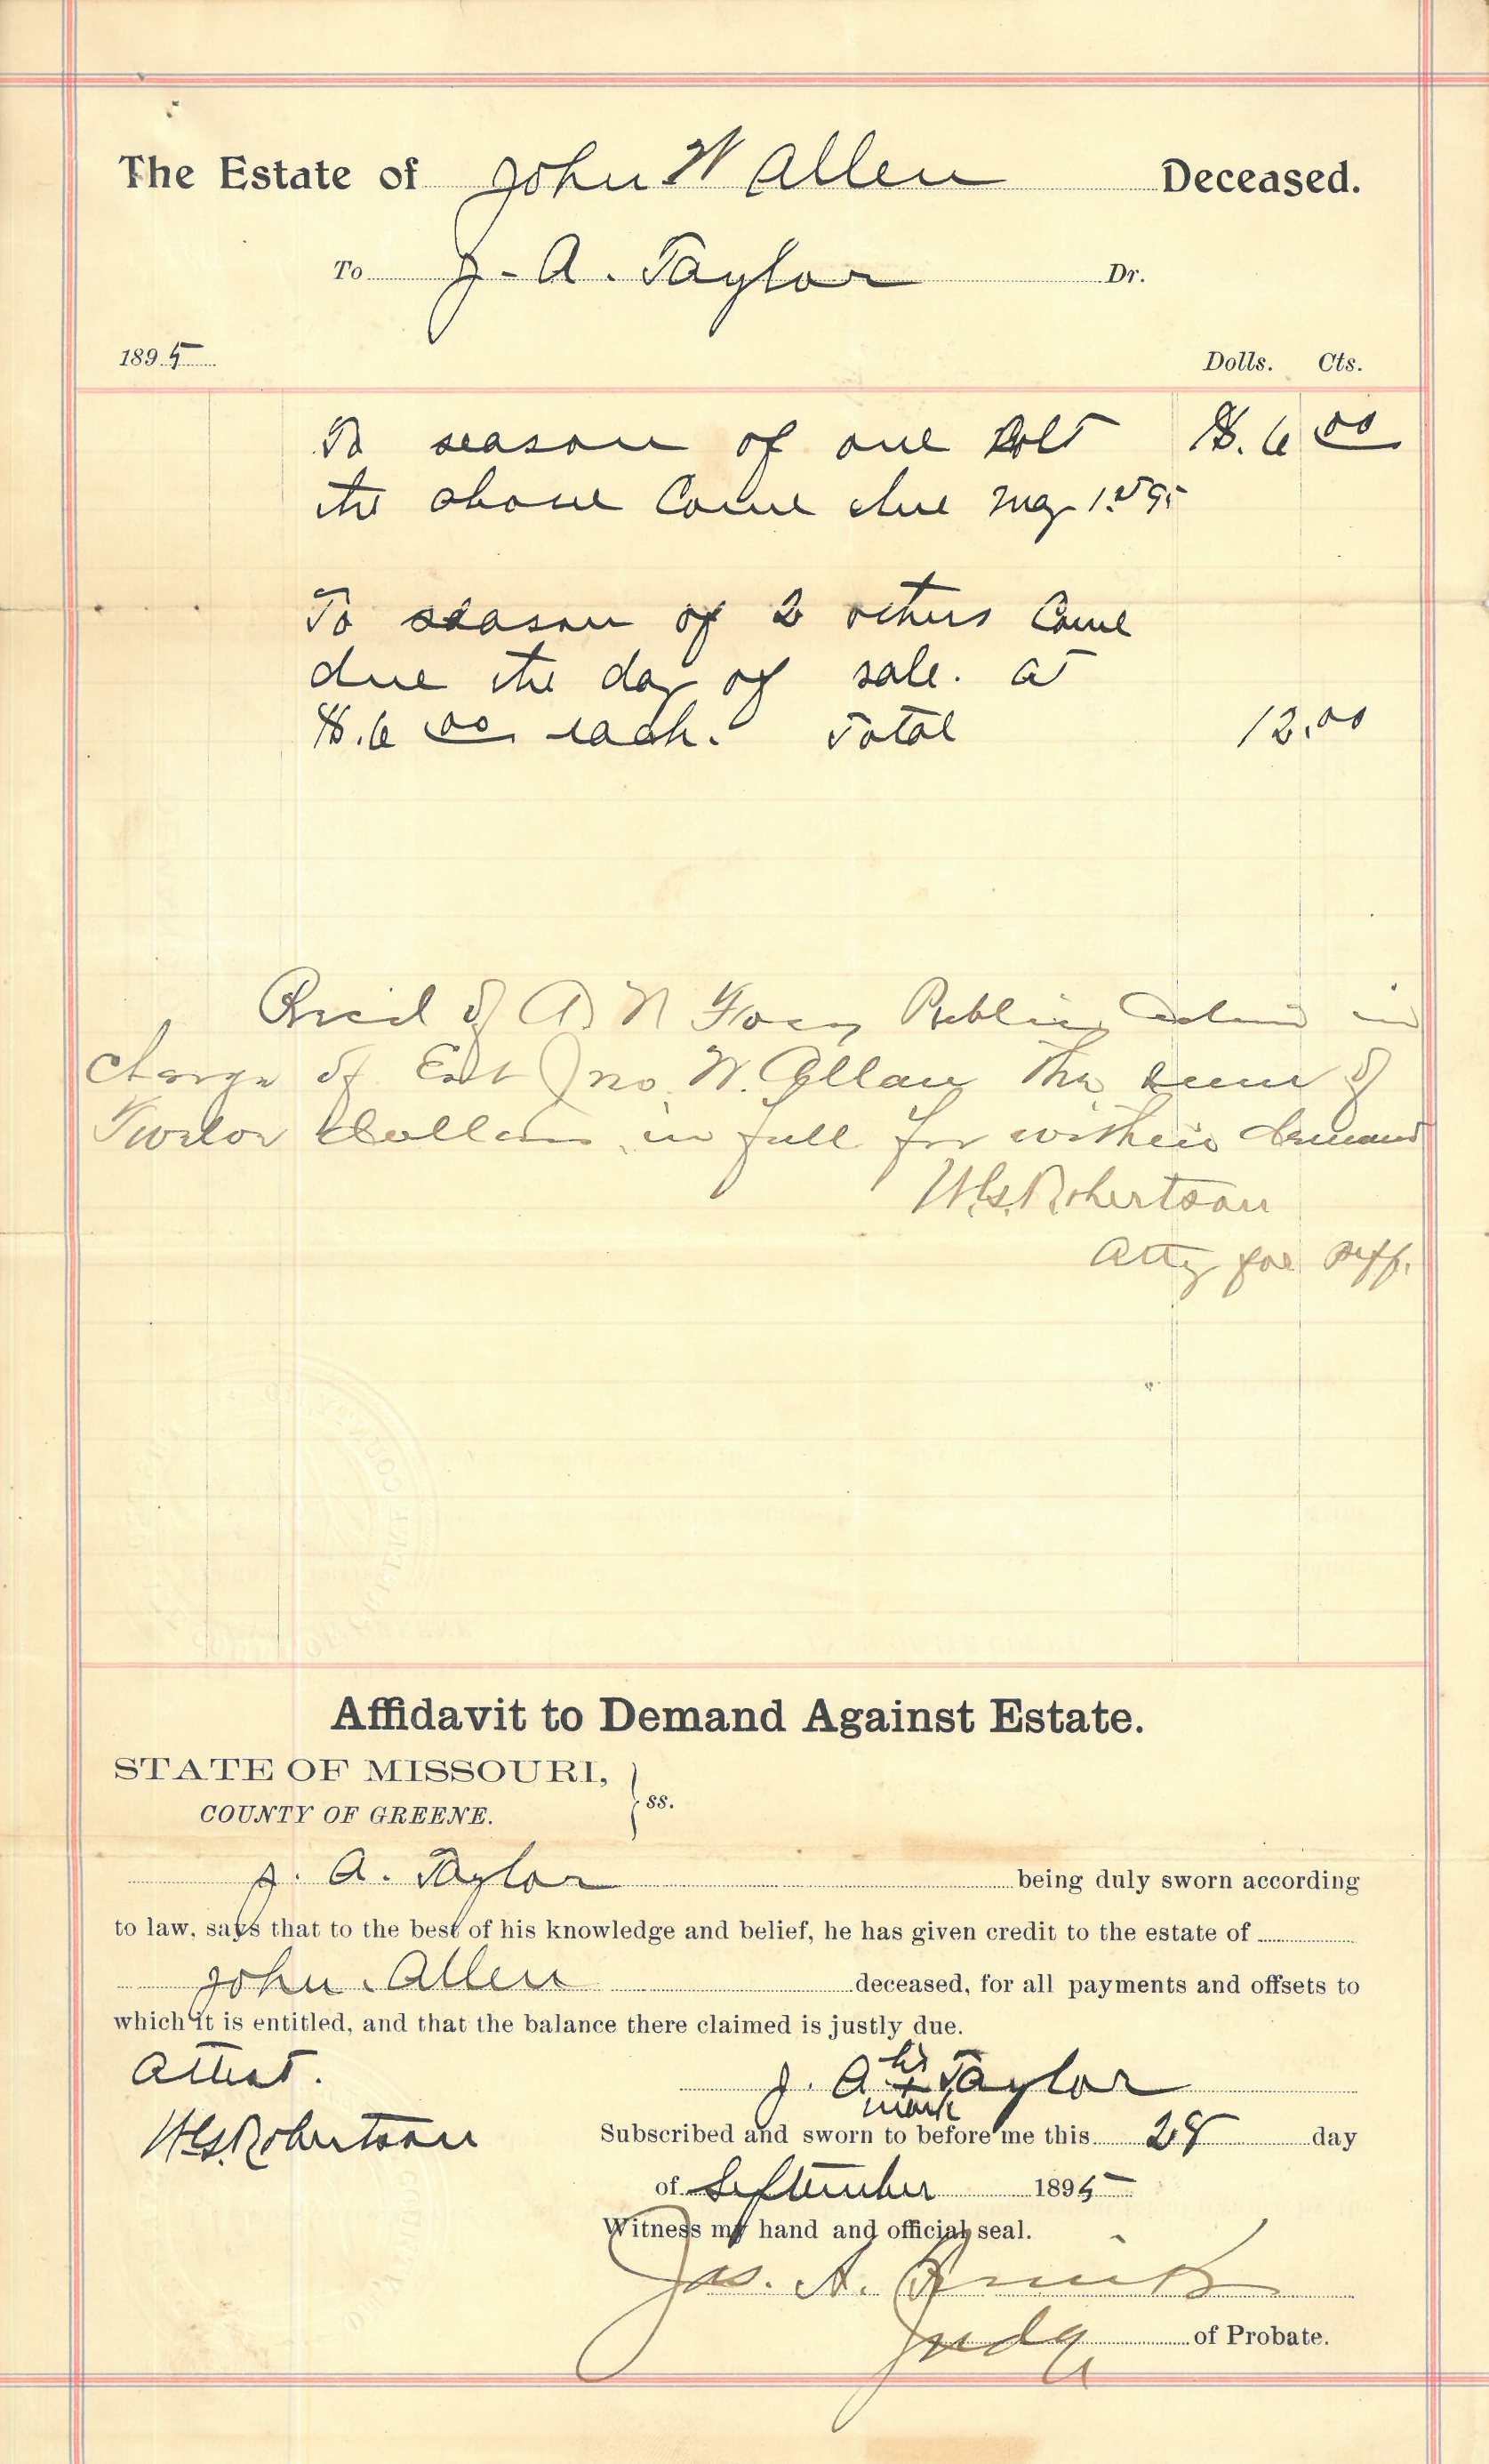 The Estate of John W Allen Deceased.
To J. A. Taylor Dr.
1895 Dolls. Cts.
To season of one Colt $.6 00
the above Came due May 1st 95
To season of 2 others Came
due the day of sale. at
$.6 00 each. Total 12.00
Recd of Public Admr in
charge of Est Jno. W. Allen The sum of
Twelve Dollars in full for within demand
W.S. Robertson
Atty for Plff.
Affidavit to Demand Against Estate.
STATE OF MISSOURI,
COUNTY OF GREENE. } ss.
J. A. Taylor being duly sworn according
to law, says that to the best of his knowledge and belief, he has given credit to the estate of
John Allen deceased, for all payments and offsets to
which it is entitled, and that the balance there claimed is justly due.
Attest. J. A. his x mark Taylor
W.S. Robertson Subscribed and sworn to before me this 28 day
of September 1895
Witness my hand and official seal.
Jas. A.
Judge of Probate.